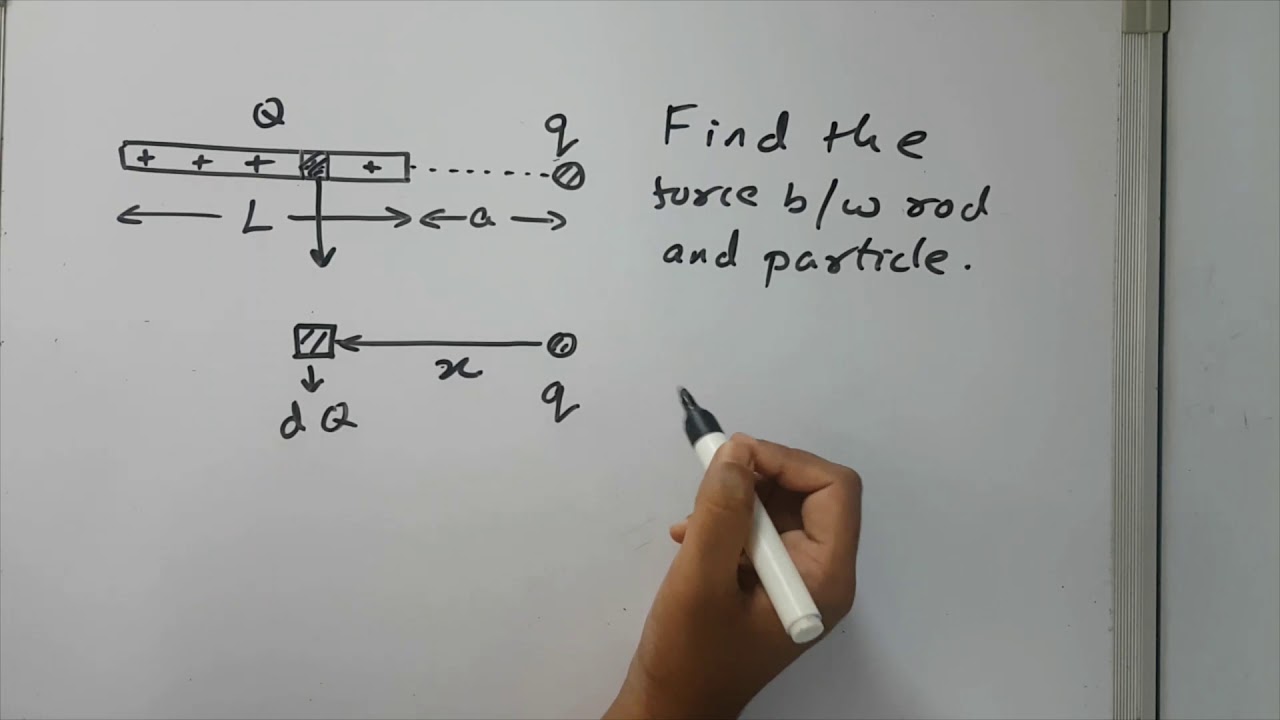 Q
q
+ + + +
L a
Find the
force b/w rod
and particle.
x
dQ q